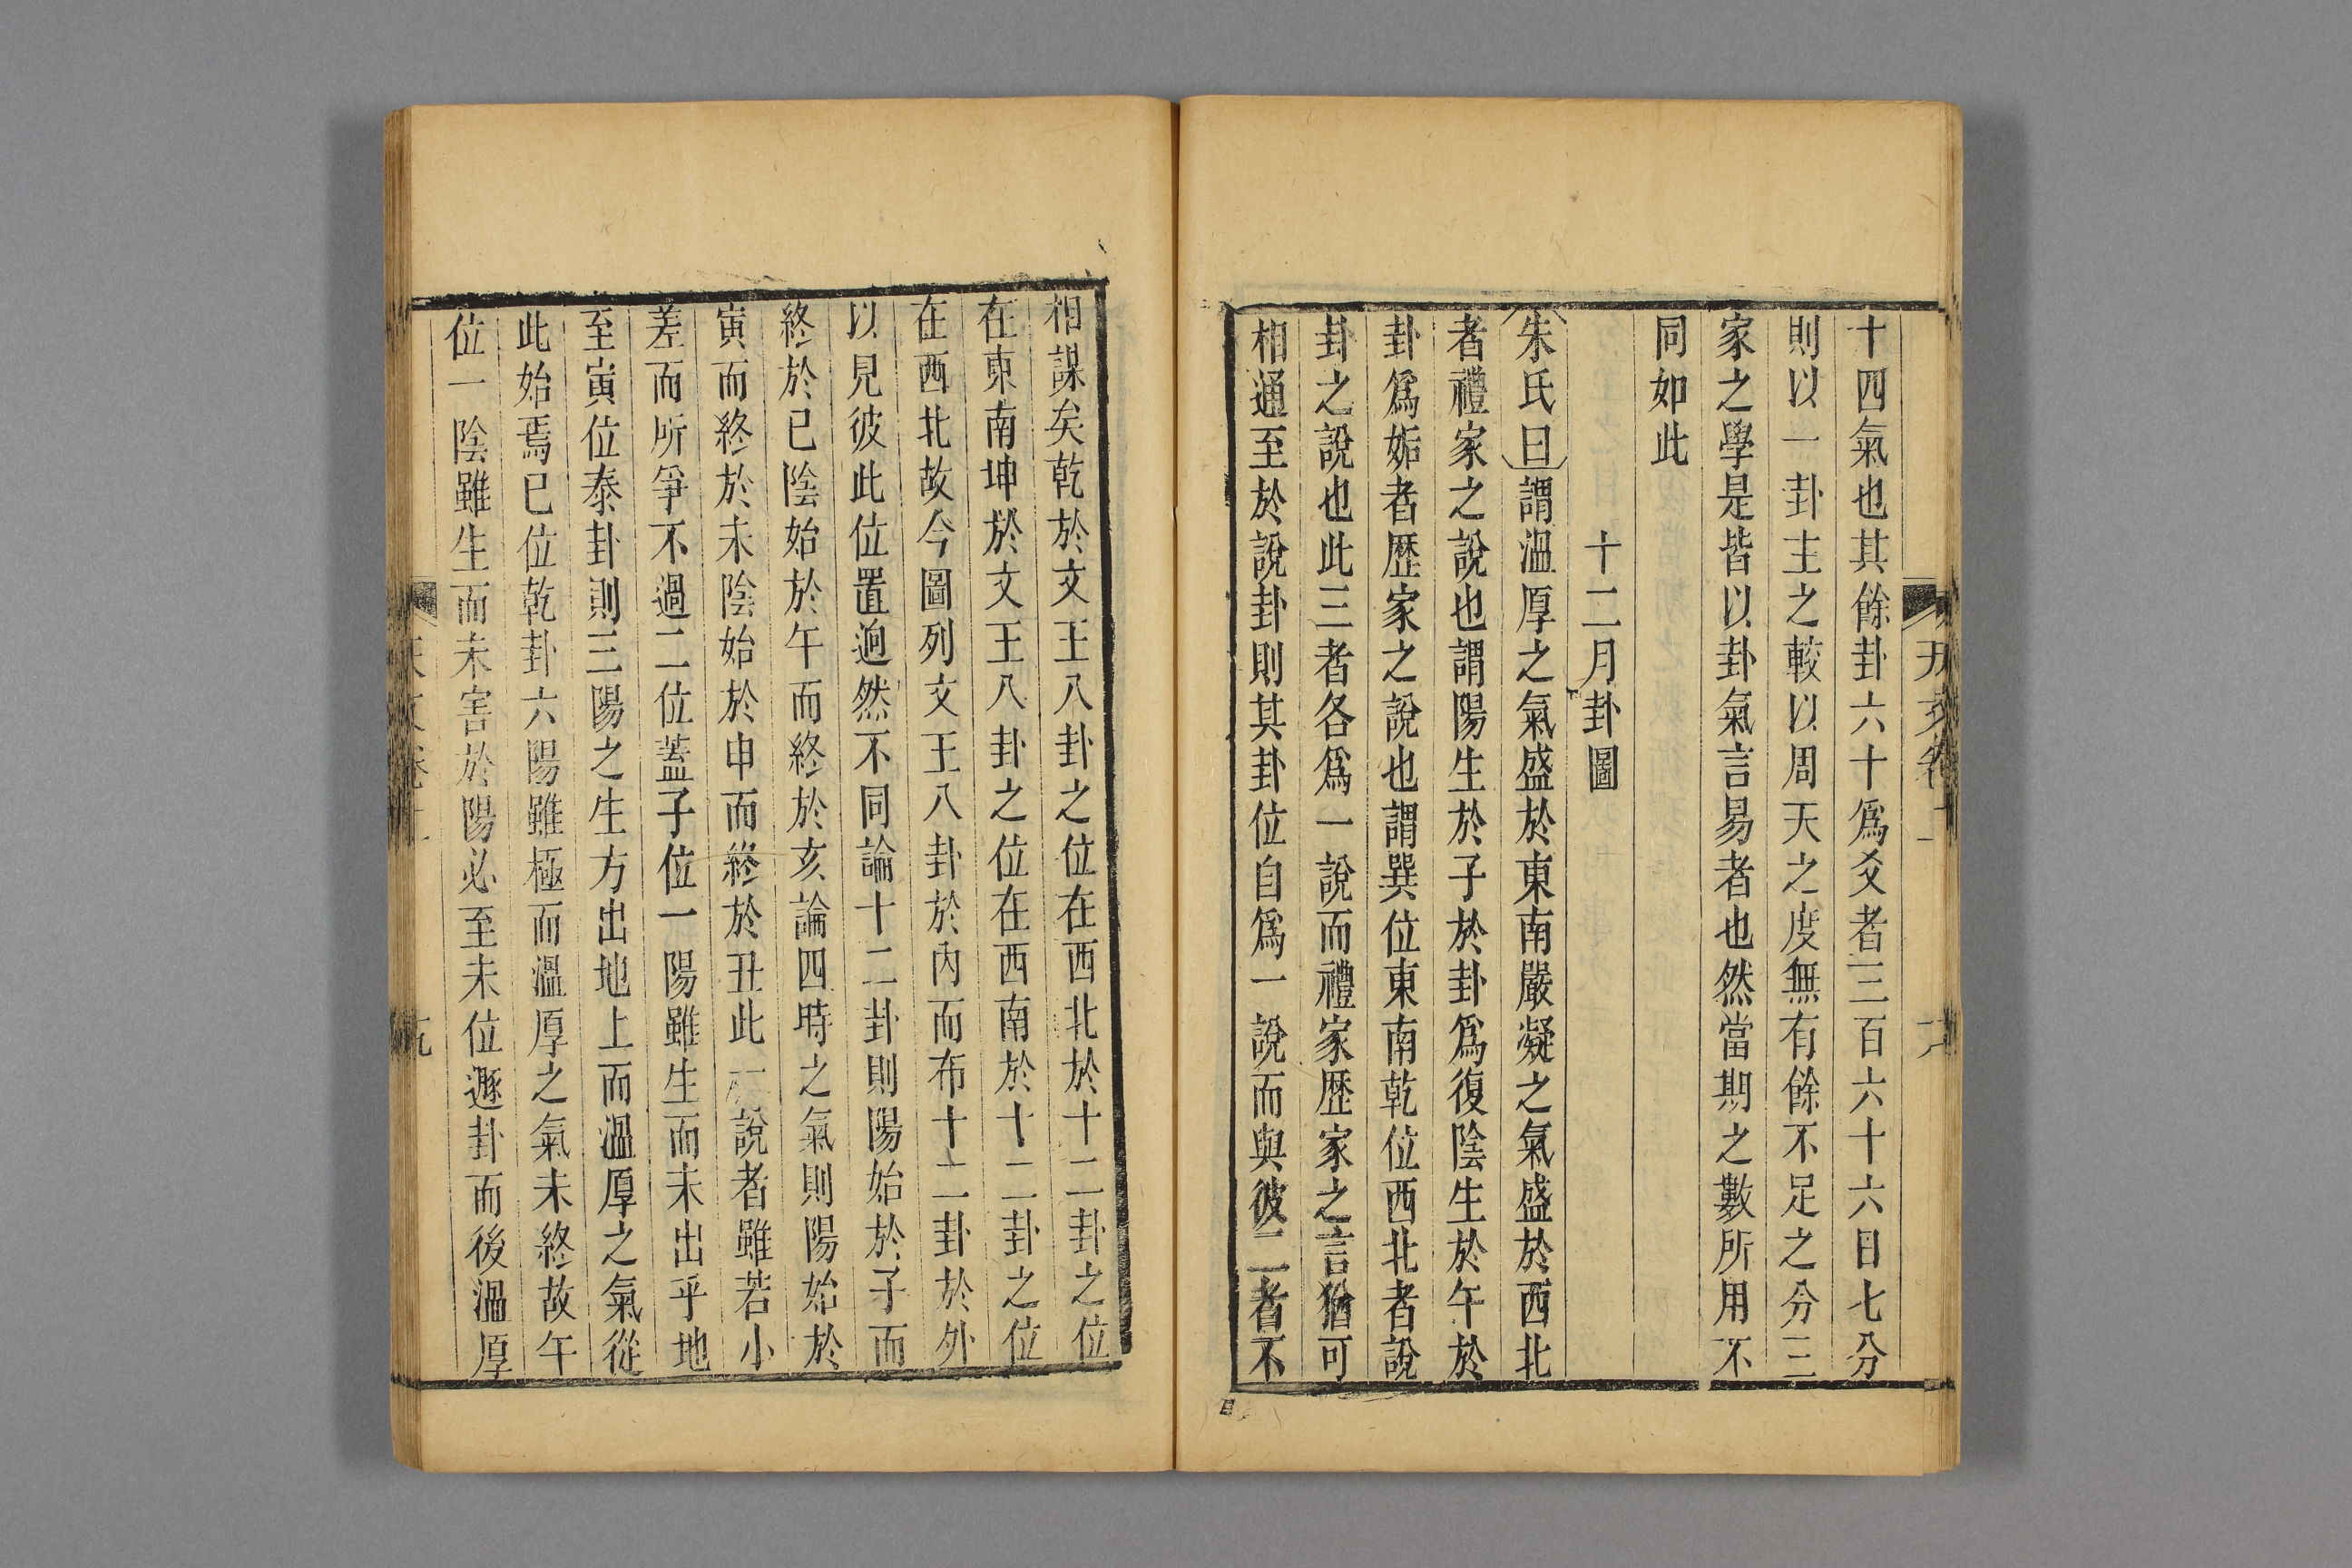 十四氣也其餘卦六十爲爻者三百六十六日七分
則以一卦主之較以周天之度無有餘不足之分三
家之學是皆以卦氣言易者也然當期之數所用不
同如此
十二月卦圖
朱氏曰謂溫厚之氣盛於東南嚴凝之氣盛於西北
者禮家之說也謂陽生於子於卦爲復陰生於午於
卦爲姤者歷家之說也謂巽位東南乾位西北者說
卦之說也此三者各爲一說而禮家歷家之言猶可
相通至於說卦則其卦位自爲一說而與彼二者不
相謀矣乾於文王八卦之位在西北於十二卦之位
在東南坤於文王八卦之位在西南於十二卦之位
在西北故今圖列文王八卦於內而布十二卦於外
以見彼此位置逈然不同論十二卦則陽始於子而
終於巳陰始於午而終於亥論四時之氣則陽始於
寅而終於未陰始於申而終於丑此二說者雖若小
差而所爭不過二位蓋子位一陽雖生而未出乎地
至寅位泰卦則三陽之生方出地上而溫厚之氣從
此始焉巳位乾卦六陽雖極而溫厚之氣未終故午
位一陰雖生而未害於陽必至未位遯卦而後溫厚